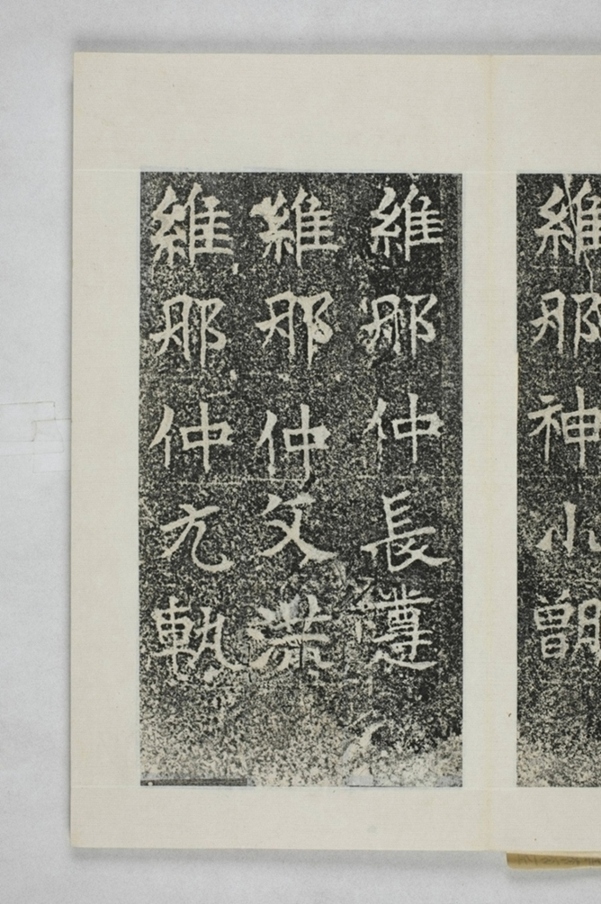 維那神小
維那仲長
維那仲文洪
維那仲